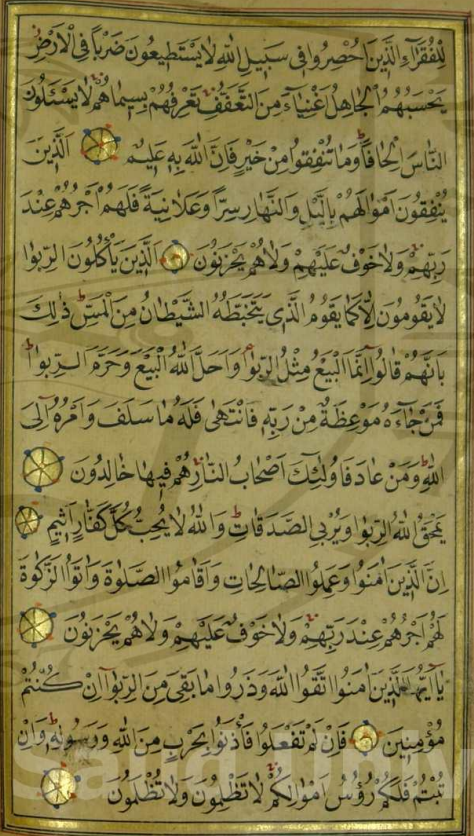 لِلْفُقَرَاءِ الَّذِينَ اُحْصِرُوا فِى سَبِيلِ اللّٰهِ لَا يَسْتَطِيعُونَ ضَرْبًا فِى الْاَرْضِ
يَحْسَبُهُمُ الْجَاهِلُ اَغْنِيَاءَ مِنَ التَّعَفُّفِ تَعْرِفُهُمْ بِسِيمَاهُمْ لَا يَسْئَلُونَ
النَّاسَ اِلْحَافًا وَمَا تُنْفِقُوا مِنْ خَيْرٍ فَاِنَّ اللّٰهَ بِهِ عَلِيمٌ اَلَّذِينَ
يُنْفِقُونَ اَمْوَالَهُمْ بِالَّيْلِ وَالنَّهَارِ سِرًّا وَعَلَانِيَةً فَلَهُمْ اَجْرُهُمْ عِنْدَ
رَبِّهِمْ وَلَا خَوْفٌ عَلَيْهِمْ وَلَا هُمْ يَحْزَنُونَ اَلَّذِينَ يَأْكُلُونَ الرِّبٰوا
لَا يَقُومُونَ اِلَّا كَمَا يَقُومُ الَّذِى يَتَخَبَّطُهُ الشَّيْطَانُ مِنَ الْمَسِّ ذٰلِكَ
بِاَنَّهُمْ قَالُوا اِنَّمَا الْبَيْعُ مِثْلُ الرِّبٰوا وَاَحَلَّ اللّٰهُ الْبَيْعَ وَحَرَّمَ الرِّبٰوا
فَمَنْ جَاءَهُ مَوْعِظَةٌ مِنْ رَبِّهِ فَانْتَهٰى فَلَهُ مَا سَلَفَ وَاَمْرُهُ اِلَى
اللّٰهِ وَمَنْ عَادَ فَاُولٰئِكَ اَصْحَابُ النَّارِ هُمْ فِيهَا خَالِدُونَ
يَمْحَقُ اللّٰهُ الرِّبٰوا وَيُرْبِى الصَّدَقَاتِ وَاللّٰهُ لَا يُحِبُّ كُلَّ كَفَّارٍ اَثِيمٍ
اِنَّ الَّذِينَ اٰمَنُوا وَعَمِلُوا الصَّالِحَاتِ وَاَقَامُوا الصَّلٰوةَ وَاٰتَوُا الزَّكٰوةَ
لَهُمْ اَجْرُهُمْ عِنْدَ رَبِّهِمْ وَلَا خَوْفٌ عَلَيْهِمْ وَلَا هُمْ يَحْزَنُونَ
يَا اَيُّهَا الَّذِينَ اٰمَنُوا اتَّقُوا اللّٰهَ وَذَرُوا مَا بَقِىَ مِنَ الرِّبٰوا اِنْ كُنْتُمْ
مُؤْمِنِينَ فَاِنْ لَمْ تَفْعَلُوا فَأْذَنُوا بِحَرْبٍ مِنَ اللّٰهِ وَرَسُولِهِ وَاِنْ
تُبْتُمْ فَلَكُمْ رُؤُسُ اَمْوَالِكُمْ لَا تَظْلِمُونَ وَلَا تُظْلَمُونَ